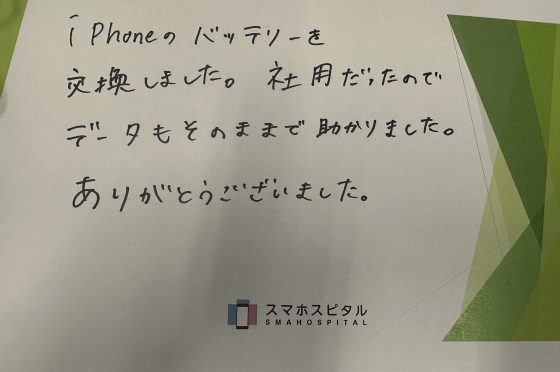 iPhoneのバッテリーを
交換しました。社用だったので
データもそのままで助かりました。
ありがとうございました。
スマホスピタル
SMAHOSPITAL